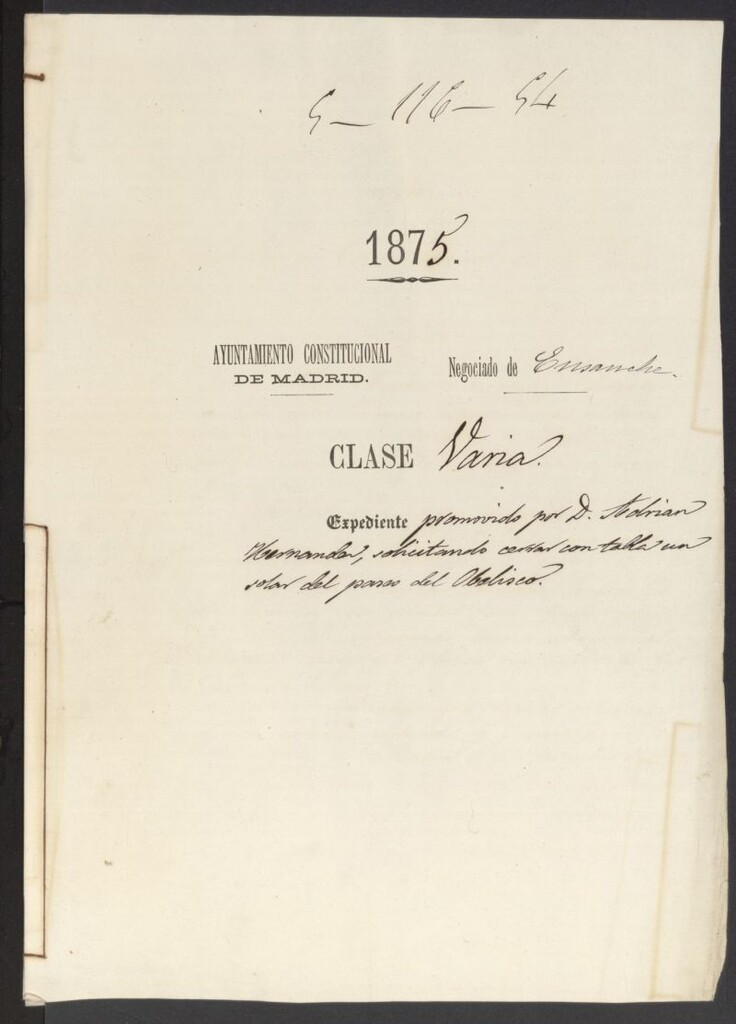 5-116-54
1875.
AYUNTAMIENTO CONSTITUCIONAL
DE MADRID.
Negociado de Ensanche.
CLASE Varia.
Expediente promovido por D. Adrian
Hernandez, solicitando cerrar con tabla un
solar del paseo del Obelisco.